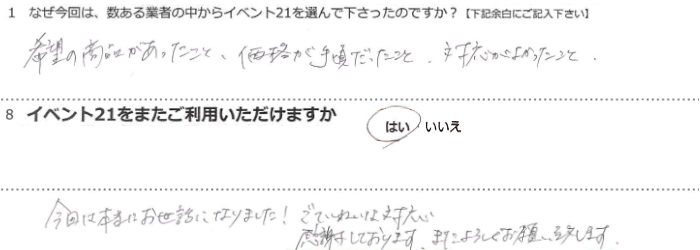 1 なぜ今回は、数ある業者の中からイベント21を選んで下さったのですか？【下記余白にご記入下さい】
希望の商品があったこと、価格が手頃だったこと、対応がよかったこと、
8 イベント21をまたご利用いただけますか
はい・いいえ
今回は本当にお世話になりました！ごていねいな対応に
感謝しております。またよろしくお願い致します。